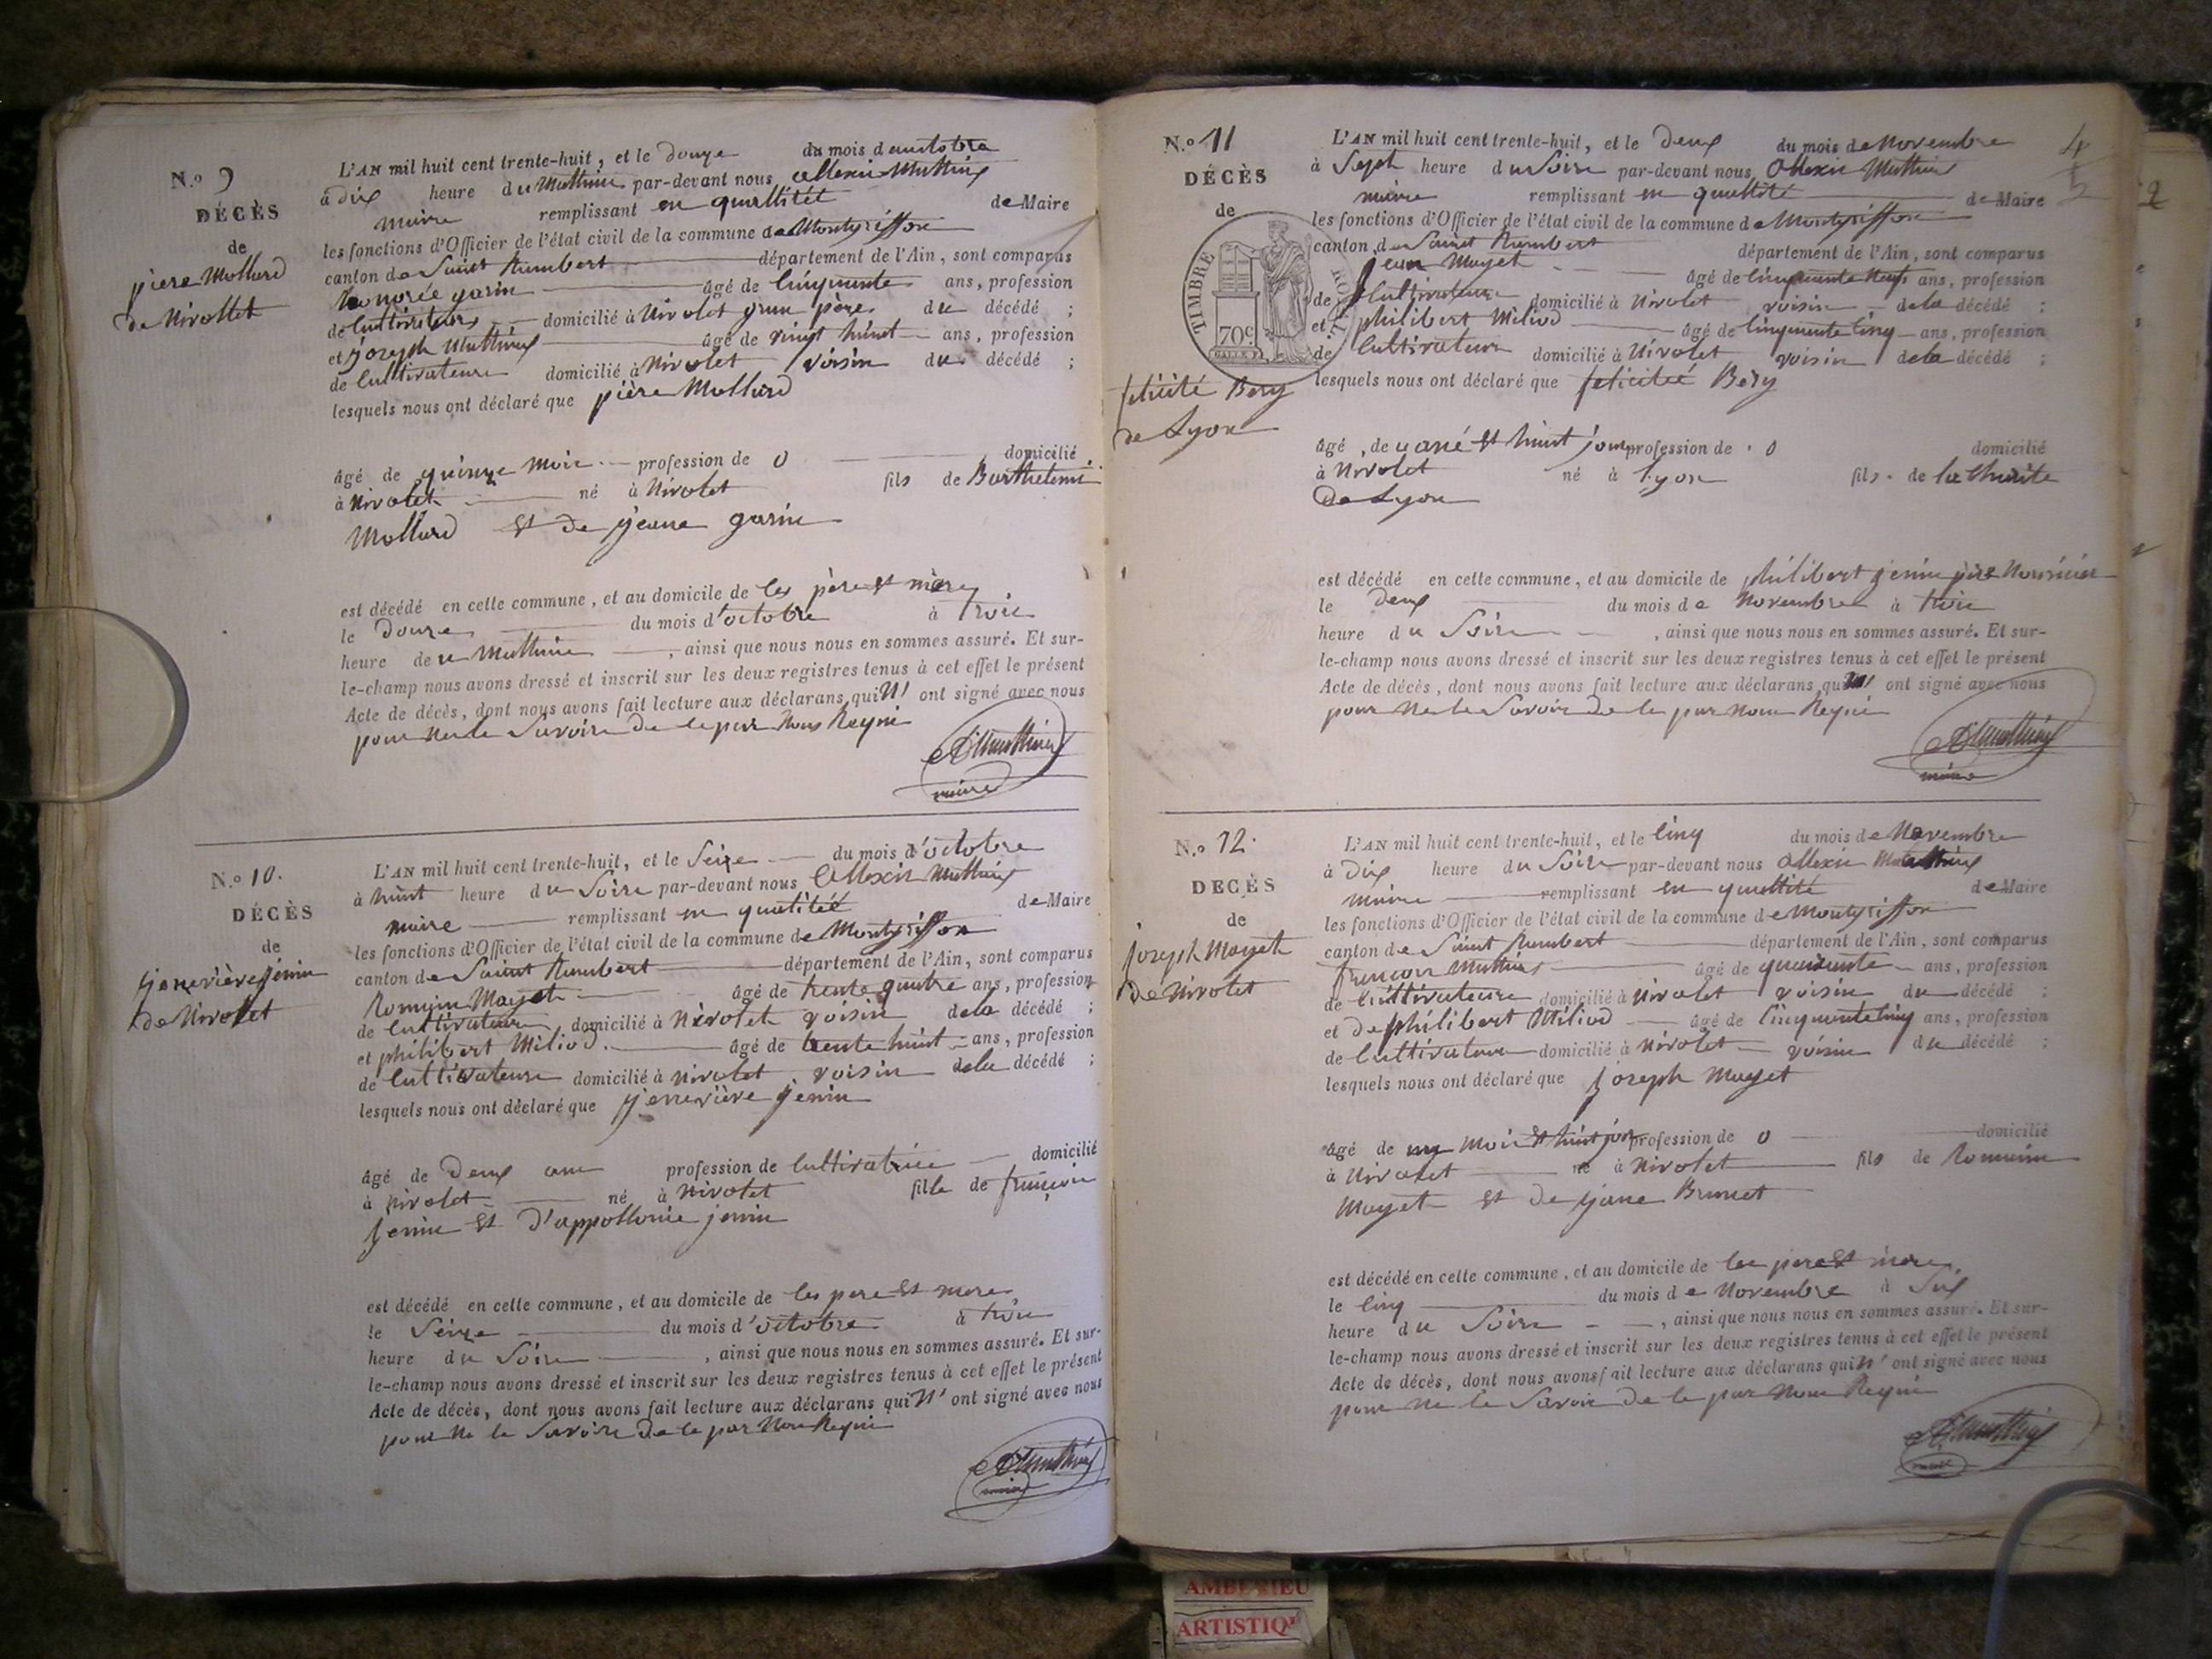 N.o 9
DÉCÈS
de
piere Mollard
de Nivollet
L'AN mil huit cent trente-huit, et le douze du mois d auctobre
à dix heure du Mathin par-devant nous allexis Mathieu
maire remplissant en quallitét de Maire
les fonctions d'Officier de l'état civil de la commune de Montgriffon
canton de Saint Rambert département de l'Ain, sont comparus
honorée garin âgé de cinquante ans, profession
de cultivateur domicilié à Nivolet gran père du décédé ;
et joseph Mathieu âgé de vingt huit ans, profession
de cultivateur domicilié à Nivolet voisin du décédé ;
lesquels nous ont déclaré que pière Mollard
âgé de quinze mois profession de 0 domicilié
à Nivolet né à Nivolet fils de Barthelemi
Mollard et de jeane garin
est décédé en cette commune, et au domicile de les père et mère
le douze du mois d'octobre à trois
heure de u Mathin, ainsi que nous nous en sommes assuré. Et sur-
le-champ nous avons dressé et inscrit sur les deux registres tenus à cet effet le présent
Acte de décès, dont nous avons fait lecture aux déclarans qui N' ont signé avec nous
pour ne le Savoire de le par Nous Requi
AMathieu
maire
N.o 10.
DÉCÈS
de
jenevière jenin
de Nivolet
L'AN mil huit cent trente-huit, et le Seize du mois d'octobre
à huit heure du Soire par-devant nous Allexis Mathieu
maire remplissant en qualitée de Maire
les fonctions d'Officier de l'état civil de la commune de Montgriffon
canton de Saint Rambert département de l'Ain, sont comparus
Romain Mayet âgé de trente quatre ans, profession
de cultivateur domicilié à Nivolet voisin de la décédé ;
et philibert Miliod. âgé de trente huit ans, profession
de cultivateure domicilié à nivolet voisin de la décédé ;
lesquels nous ont déclaré que jenevière jenin
âgé de Deux ans profession de cultivatrice domicilié
à nivolet né à nivolet fille de françois
jenin et d'appollonie jenin
est décédé en cette commune, et au domicile de les pere et mere
le Seize du mois d'octobre à trois
heure du Soire, ainsi que nous nous en sommes assuré. Et sur-
le-champ nous avons dressé et inscrit sur les deux registres tenus à cet effet le présent
Acte de décès, dont nous avons fait lecture aux déclarans qui N' ont signé avec nous
pour ne le Savoire de le par Nous Requi
AMathieu
maire
N.o 11
DÉCÈS
de
TIMBRE ROYAL
70c
felicité Bery
de Lyon
4
L'AN mil huit cent trente-huit, et le Deux du mois de Novembre
à Sept heure du Soire par-devant nous Allexis Mathieu
maire remplissant en quallité de Maire
les fonctions d'Officier de l'état civil de la commune de Montgriffon
canton de Saint Rambert département de l'Ain, sont comparus
jean Mayet âgé de cinquante neuf ans, profession
de cultivateure domicilié à Nivolet voisin de la décédé ;
et philibert Miliod âgé de cinquante cinq ans, profession
de cultivateur domicilié à Nivolet voisin de la décédé ;
lesquels nous ont déclaré que felicitée Bery
âgé de u ané et huit jour profession de 0 domicilié
à Nivolet né à Lyon fils de la Charite
De Lyon
est décédé en cette commune, et au domicile de philibert jenin père Nourisier
le Deux du mois de Novembre à trois
heure du Soire, ainsi que nous nous en sommes assuré. Et sur-
le-champ nous avons dressé et inscrit sur les deux registres tenus à cet effet le présent
Acte de décès, dont nous avons fait lecture aux déclarans qui N' ont signé avec nous
pour ne le Savoir de le par nous Requi
AMathieu
maire
N.o 12.
DECÈS
de
joseph Mayet
de Nivolet
L'AN mil huit cent trente-huit, et le cinq du mois de Novembre
à Dix heure du Soire par-devant nous Allexis Mathieu
maire remplissant en quallité de Maire
les fonctions d'Officier de l'état civil de la commune de Montgriffon
canton de Saint Rambert département de l'Ain, sont comparus
françois Mathieu âgé de quarante ans, profession
de cultivateure domicilié à nivolet voisin du décédé ;
et de philibert Miliod âgé de cinquante cinq ans, profession
de cultivateur domicilié à nivolet voisin du décédé ;
lesquels nous ont déclaré que joseph Mayet
âgé de un mois et huit jour profession de 0 domicilié
à Nivolet né à Nivolet fils de Romain
Mayet et de jane Brunet
est décédé en cette commune, et au domicile de les pere et mere
le cinq du mois de Novembre à Six
heure du Soire, ainsi que nous nous en sommes assuré. Et sur-
le-champ nous avons dressé et inscrit sur les deux registres tenus à cet effet le présent
Acte de décès, dont nous avons fait lecture aux déclarans qui N' ont signé avec nous
pour ne le Savoir de le par Nous Requi
AMathieu
AMBERIEU
ARTISTIQ